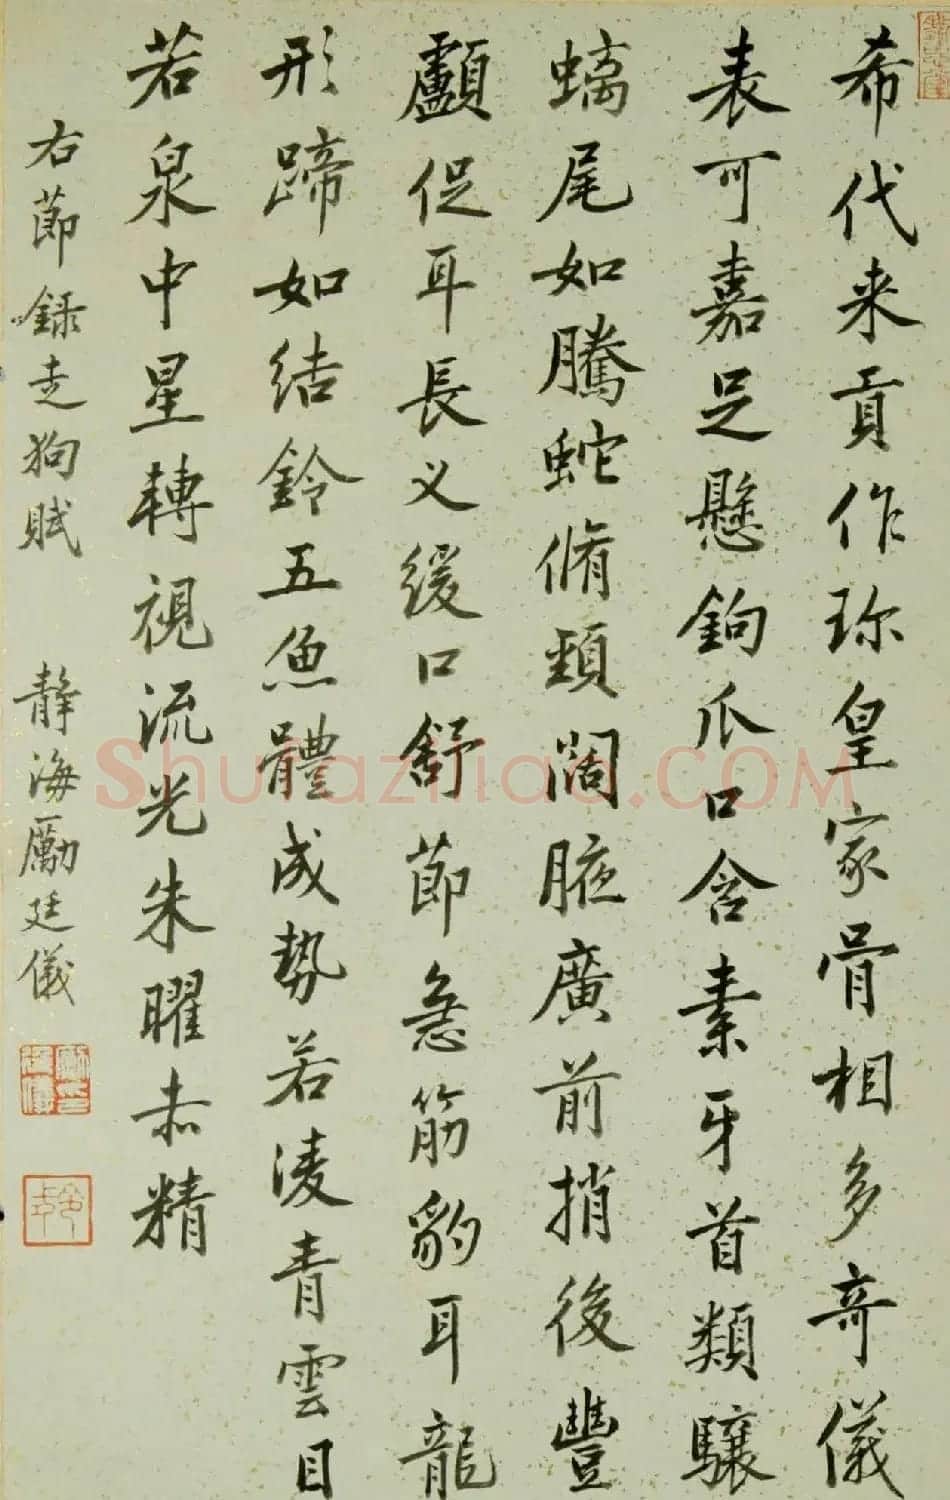 希代来貢作珎皇家骨相多奇儀
表可嘉足懸鉤爪口含素牙首類驤
螭尾如騰蛇脩頸闊腋廣前捎後豐
顱促耳長义緩口舒節急筋豹耳龍
形蹄如結鈴五魚體成勢若淩青雲目
若泉中星轉視流光朱曜赤精
右節録走狗賦
静海勵廷儀
Shufaziliao.COM